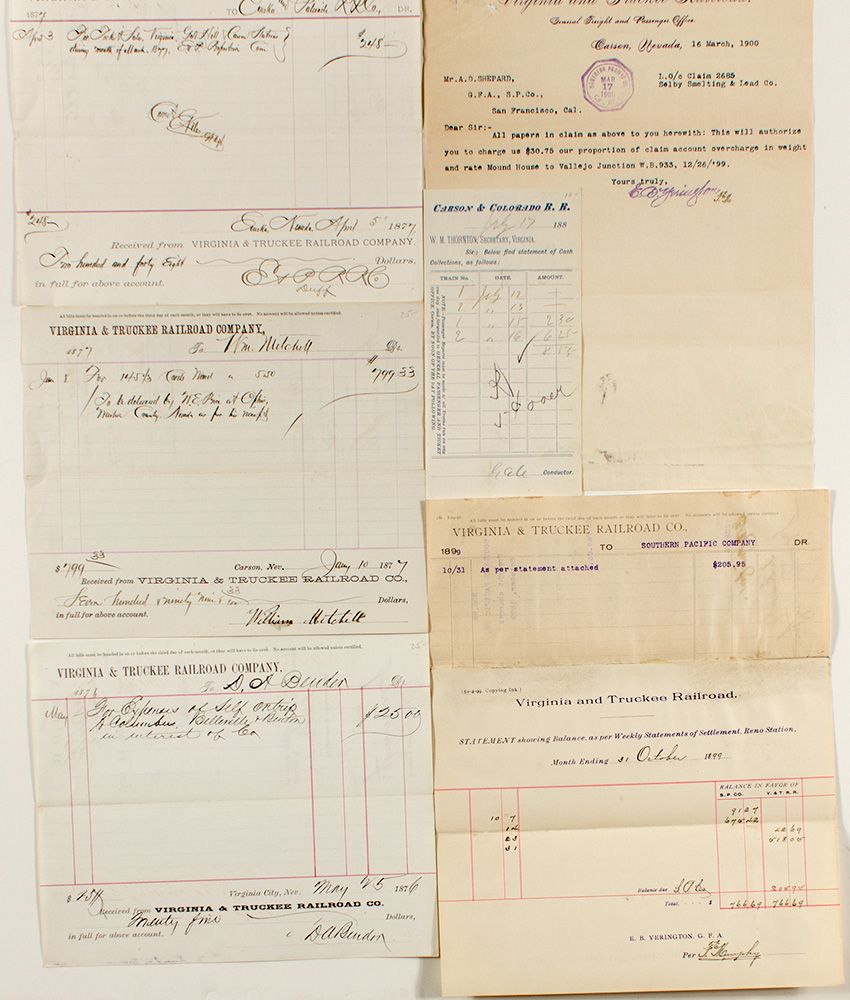 1877 TO Eureka & Palisade R.R.Co. DR.
April 3 For Ticket Sales, Virginia, Gold Hill & Carson Stations
during month of March, 1877, $248—
$248— Eureka, Nevada, April 5th 1877
Received from VIRGINIA & TRUCKEE RAILROAD COMPANY.
Two hundred and forty Eight Dollars,
in full for above account. E & P R R Co
Duff
All bills must be handed in on or before the third day of each month, or they will have to lie over. No account will be allowed unless certified.
25-
VIRGINIA & TRUCKEE RAILROAD COMPANY,
1877 To Wm. Mitchell Dr.
Jan 8 For 145 1/3 Cords Wood a 5.50 $799 33
To be delivered by
$799 33 Carson, Nev. Jany 10 1877
Received from VIRGINIA & TRUCKEE RAILROAD CO.,
Seven hundred & ninety nine & Dollars,
in full for above account. William Mitchell
All bills must be handed in on or before the third day of each month, or they will have to lie over. No account will be allowed unless certified.
25-
VIRGINIA & TRUCKEE RAILROAD COMPANY,
1876 To D. A. Bender Dr.
May For Expenses of Self on trip $25 00
to Columbus, Belleville & Benton
in interest of Co
Virginia City, Nev. May 1876
$25
Received from VIRGINIA & TRUCKEE RAILROAD CO.
Twenty five Dollars,
in full for above account. D A Bender
Virginia and Truckee Railroad.
General Freight and Passenger Office.
Carson, Nevada, 16 March, 1900
Mr. A.D. SHEPARD,
G.F.A., S.P.Co.,
San Francisco, Cal.
L.O/c Claim 2685
Selby Smelting & Lead Co.
SOUTHERN PACIFIC CO.
MAR
17
1900
Dear Sir:-
All papers in claim as above to you herewith: This will authorize
you to charge us $30.75 our proportion of claim account overcharge in weight
and rate Mound House to Vallejo Junction W.B.933, 12/26/'99.
Yours truly,
E B Yerington
CARSON & COLORADO R. R.
July 17 188
W. M. THORNTON, SECRETARY, VIRGINIA.
Sir: Below find statement of Cash
Collections, as follows:
TRAIN No. DATE AMOUNT.
1 July 12 —
2 " 13 —
1 " 15 2 30
2 " 16 6 25
8 55
Gale Conductor.
All bills must be handed in on or before the third day of each month, or they will have to lie over. No accounts will be allowed unless certified
VIRGINIA & TRUCKEE RAILROAD CO.,
1899 TO SOUTHERN PACIFIC COMPANY DR.
10/31 As per statement attached $205.95
(8-2-99 Copying Ink)
Virginia and Truckee Railroad.
STATEMENT showing Balance, as per Weekly Statements of Settlement, Reno Station,
Month Ending 31 October 1899
BALANCE IN FAVOR OF
S. P. CO. V. & T. R. R.
10 7 91 27
14 675 42
23 42 69
31 518 05
Balance due S. P. Co 205 95
Total, $ 766 69 766 69
E. B. YERINGTON, G. F. A.
Per